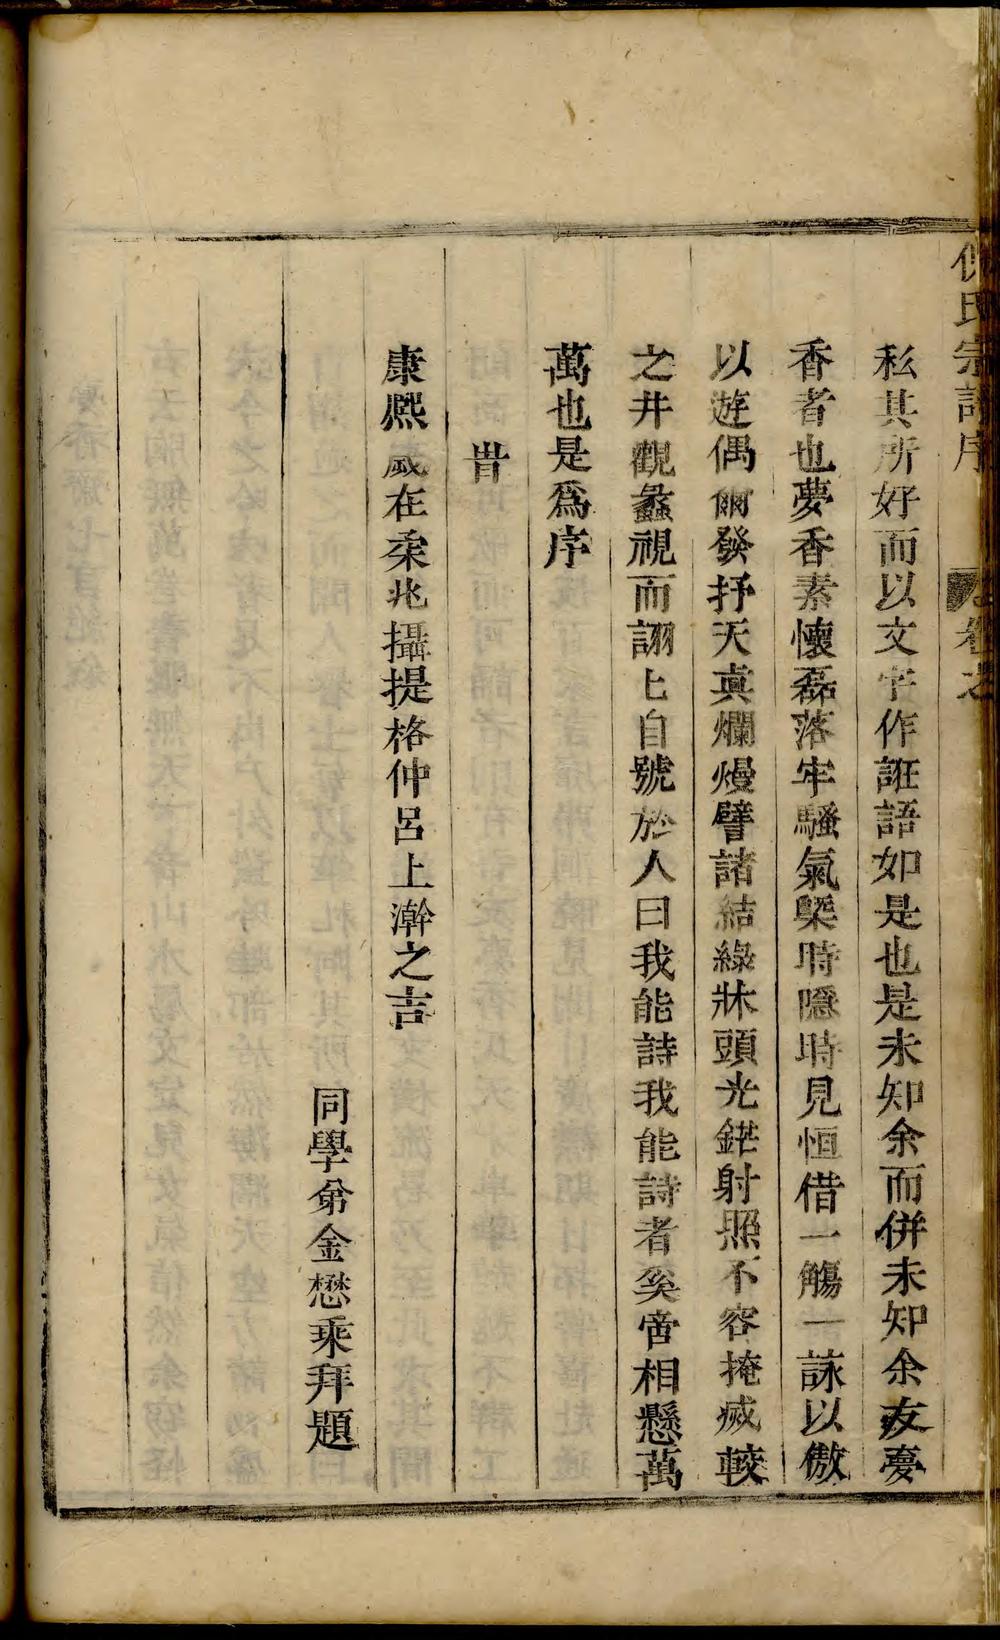 氏宗譜序 卷之
私其所好而以文字作誑語如是也是未知余而併未知余友夢
香者也夢香素懷磊落牢騷氣槩時隱時見恒借一觴一詠以傲
以遊偶爾發抒天真爛熳譬諸結綠牀頭光鋩射照不容掩滅較
之井觀蠡視而詡上自號於人曰我能詩我能詩者奚啻相懸萬
萬也是爲序
旹
康熙歲在柔兆攝提格仲呂上澣之吉
同學弟金懋乘拜題